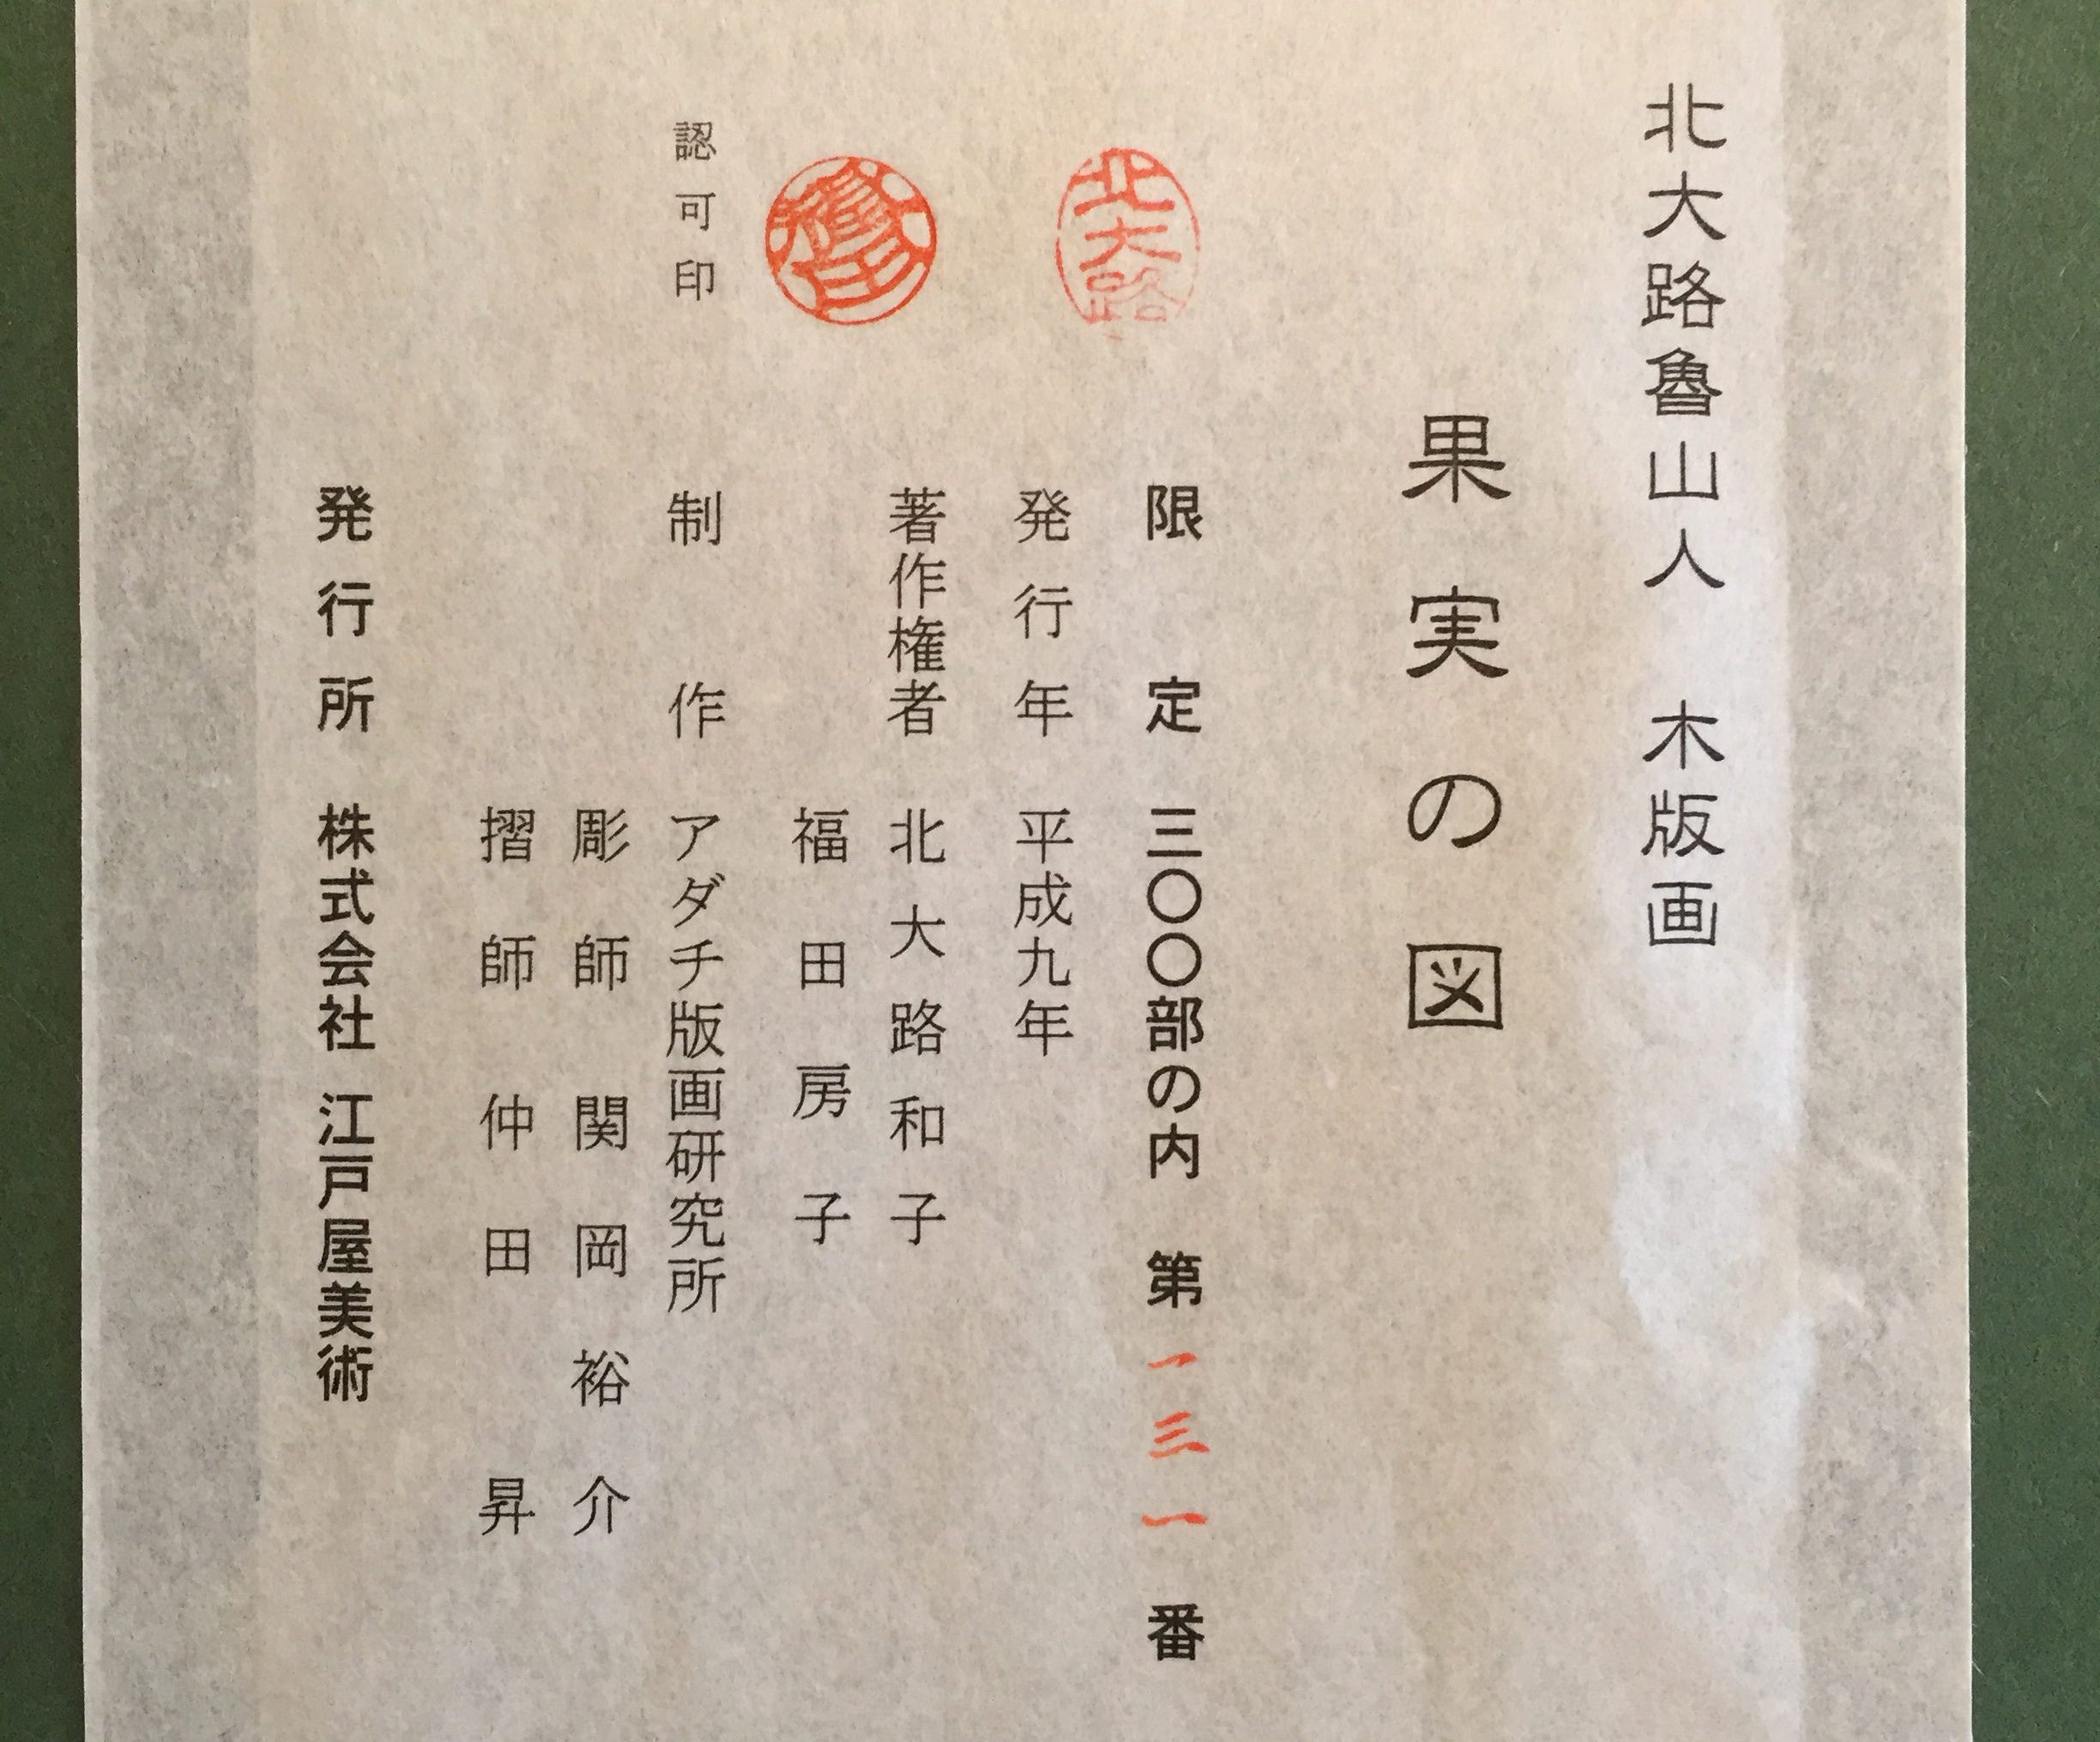 北大路魯山人　木版画
果実の図
限定　三〇〇部の内　第一三一番
発行年　平成九年
著作権者　北大路和子
福田房子
制作　アダチ版画研究所
彫師　関岡裕介
摺師　仲田昇
発行所　株式会社 江戸屋美術
北大路
認可印